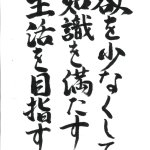 欲を少なくして
知識を満たす
生活を目指す